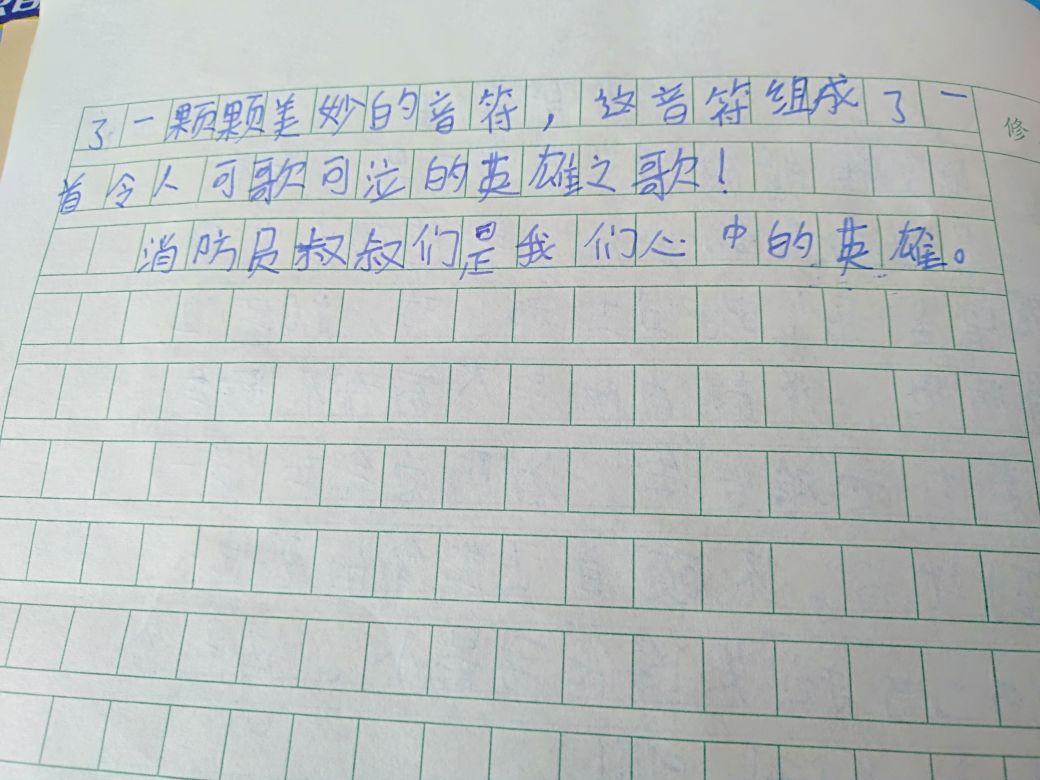 了一颗颗美妙的音符，这音符组成了一
首令人可歌可泣的英雄之歌！
消防员叔叔们是我们心中的英雄。
修